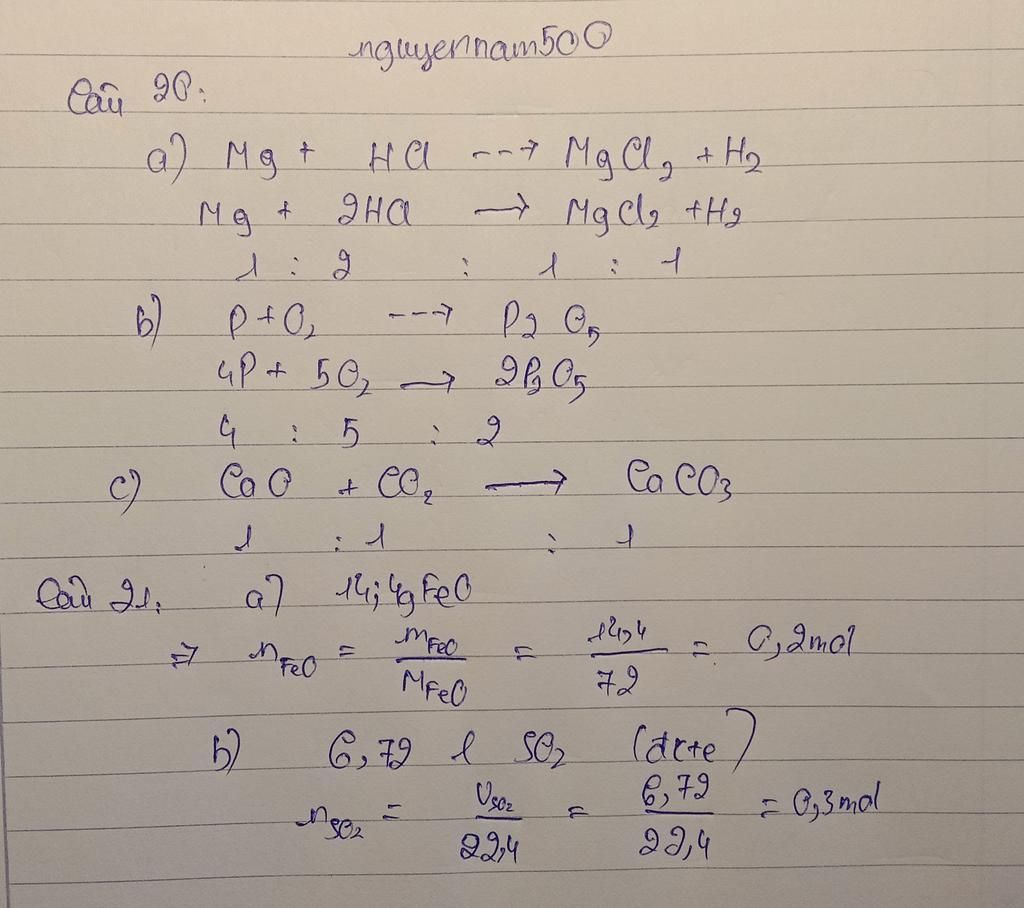 nguyennam500
Câu 20:
a) Mg + HCl ---> MgCl₂ + H₂
Mg + 2HCl → MgCl₂ + H₂
1 : 2 : 1 : 1
b) P + O₂ ---> P₂O₅
4P + 5O₂ → 2P₂O₅
4 : 5 : 2
c) CaO + CO₂ → CaCO₃
1 : 1 : 1
Câu 21: a) 14,4g FeO
⇒ n_FeO = m_FeO / M_FeO = 14,4 / 72 = 0,2 mol
b) 6,72 l SO₂ (đktc)
n_SO₂ = V_SO₂ / 22,4 = 6,72 / 22,4 = 0,3 mol